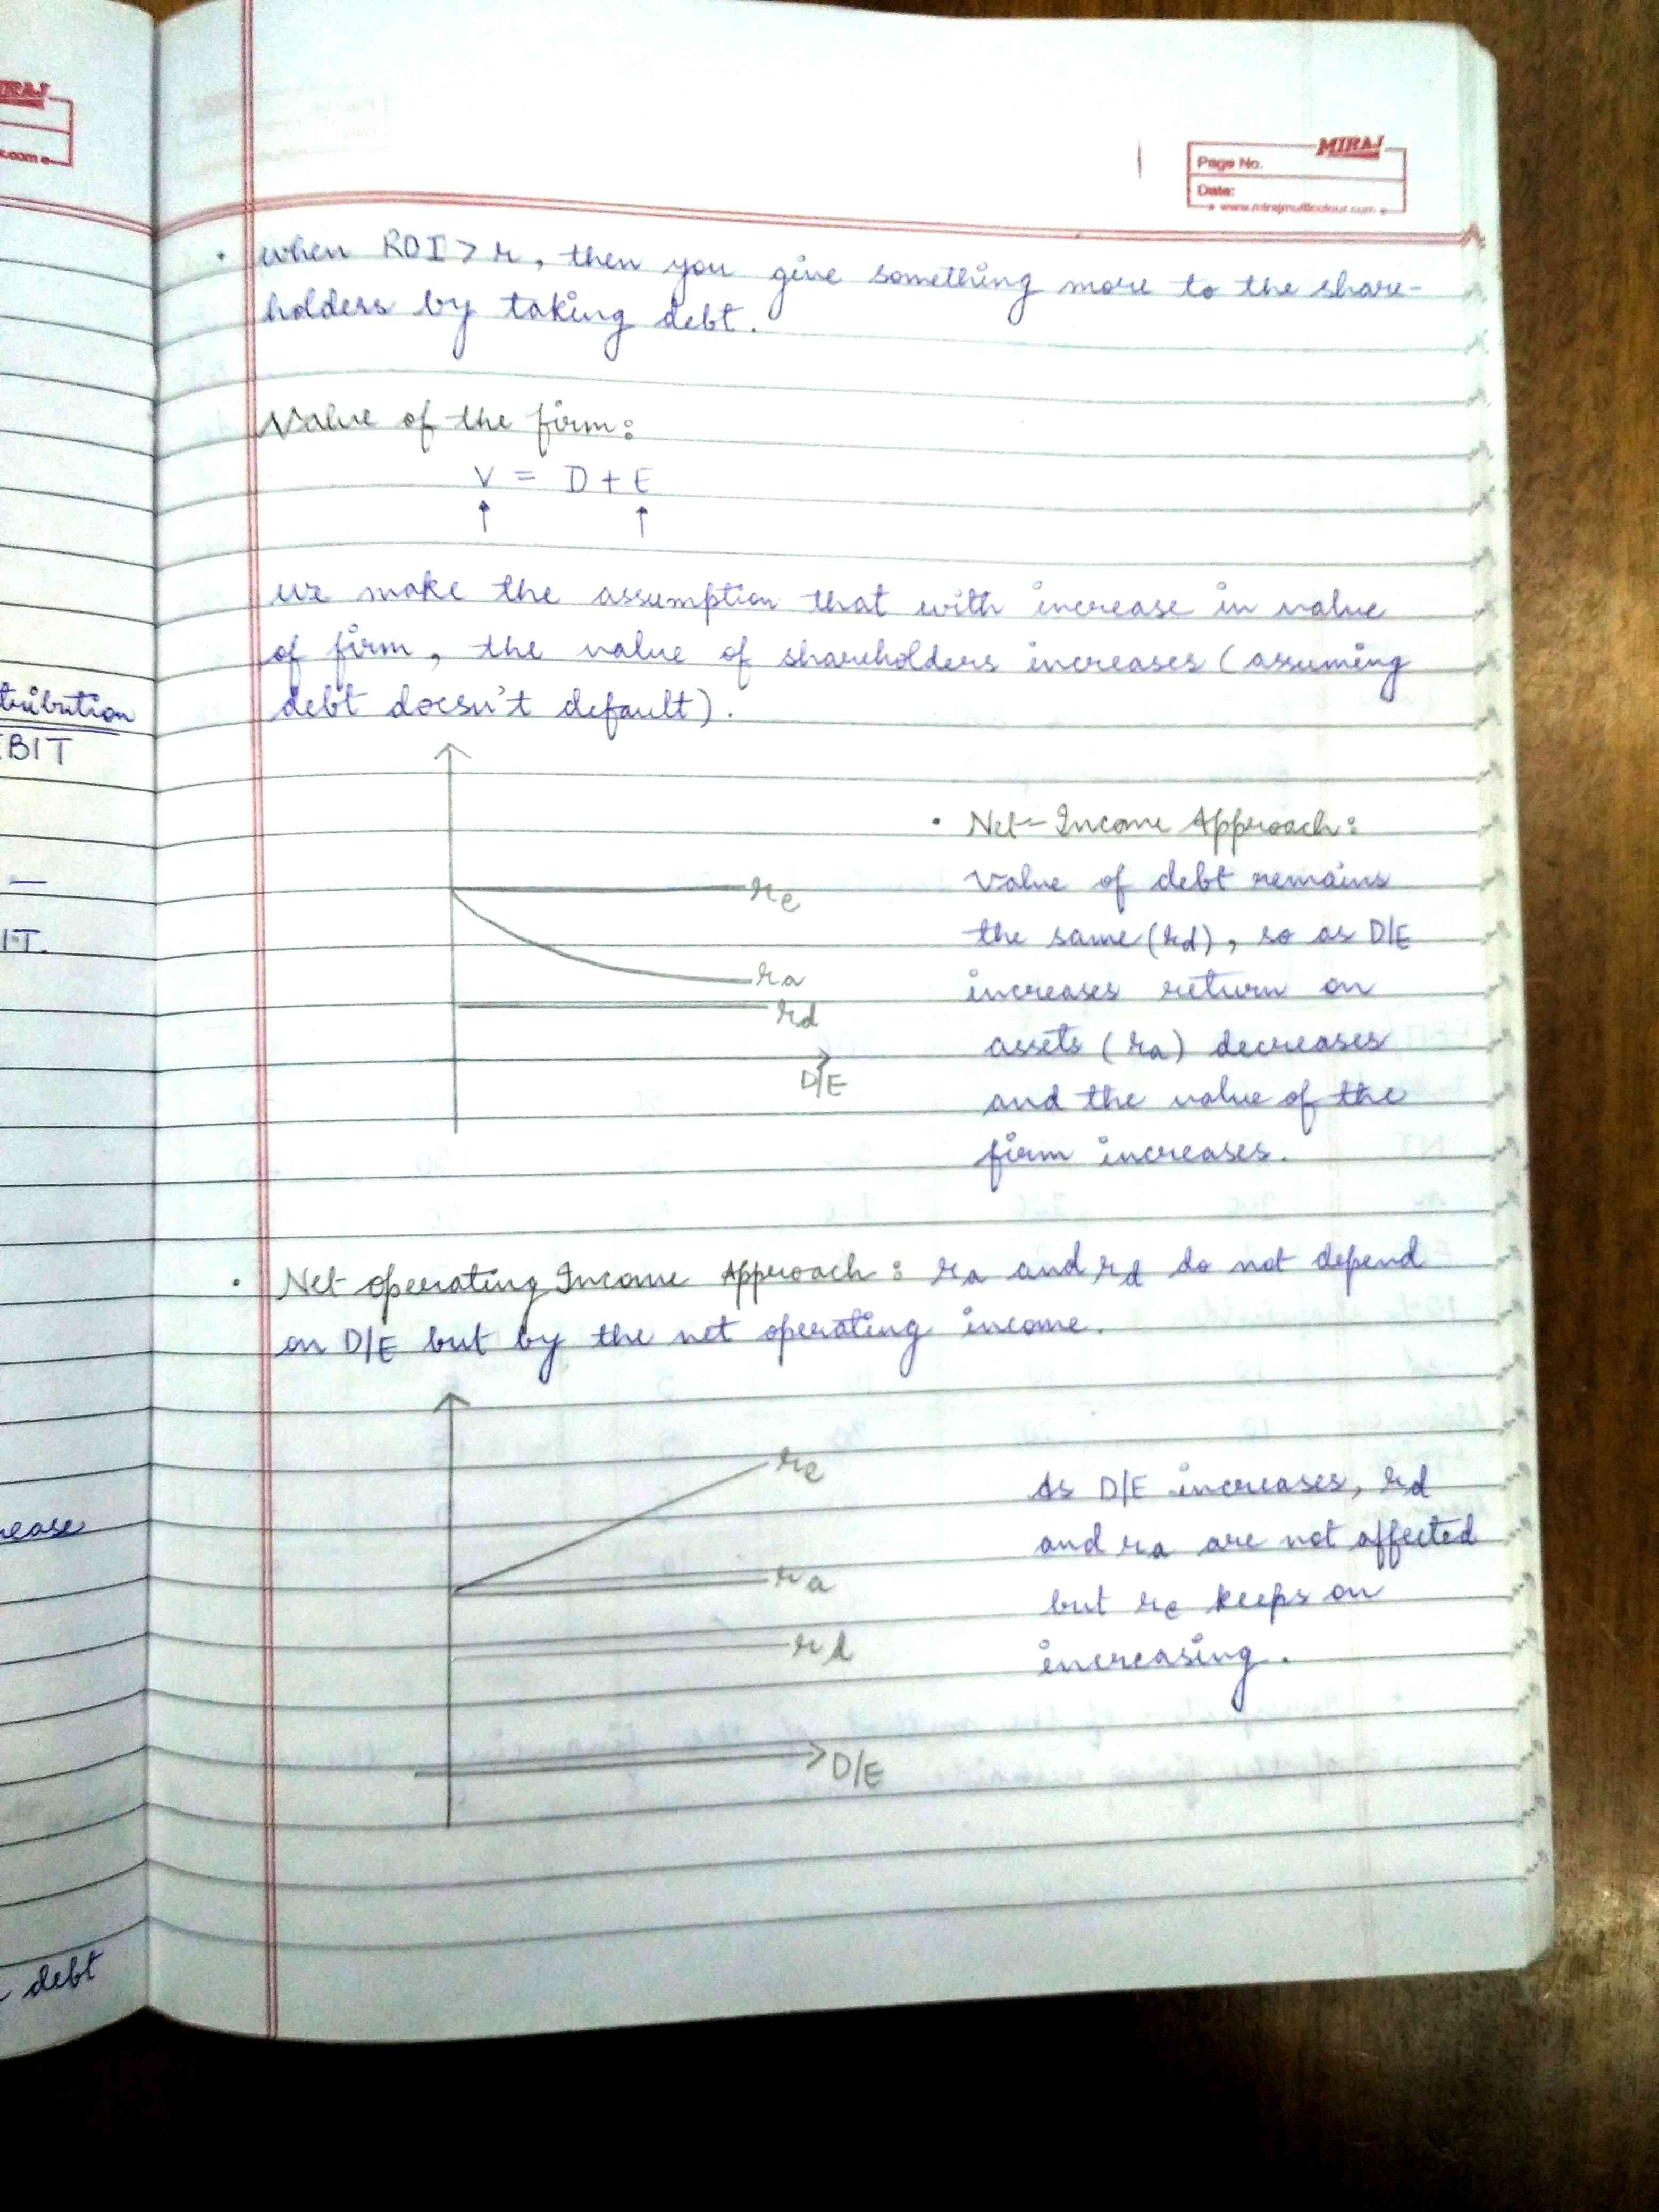 MIRAJ
Page No.
Date:
www.mirajmulticolour.com
• when ROI > r, then you give something more to the share-
holders by taking debt.
Value of the firm:
V = D + E
↑ ↑
we make the assumption that with increase in value
of firm, the value of shareholders increases (assuming
debt doesn't default).
re
ra
rd
D/E
• Net-Income Approach:
Value of debt remains
the same (rd), so as D/E
increases return on
assets (ra) decreases
and the value of the
firm increases.
• Net operating Income Approach: ra and rd do not depend
on D/E but by the net operating income.
re
ra
rd
D/E
As D/E increases, rd
and ra are not affected
but re keeps on
increasing.
tribution
BIT
IT.
rease
debt